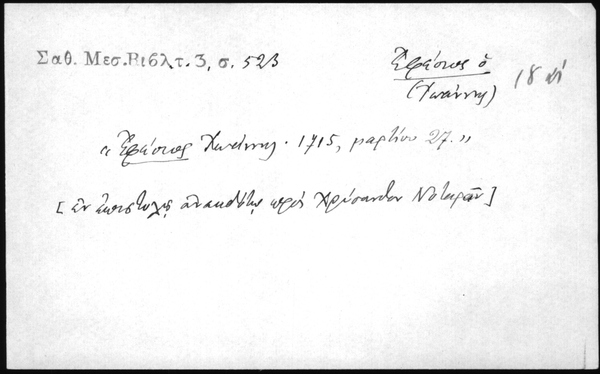 Σαθ. Μεσ. Βιβλ τ. 3, σ. 523
Ἐφέσιος ὁ
(Ἰωάννης)
18
« Ἐφέσιος Ἰωάννης. 1715, μαρτίου 27. »
[ἐν ἐπιστολῇ ἀνεκδότῳ πρὸς Χρύσανθον Νοταρᾶν]